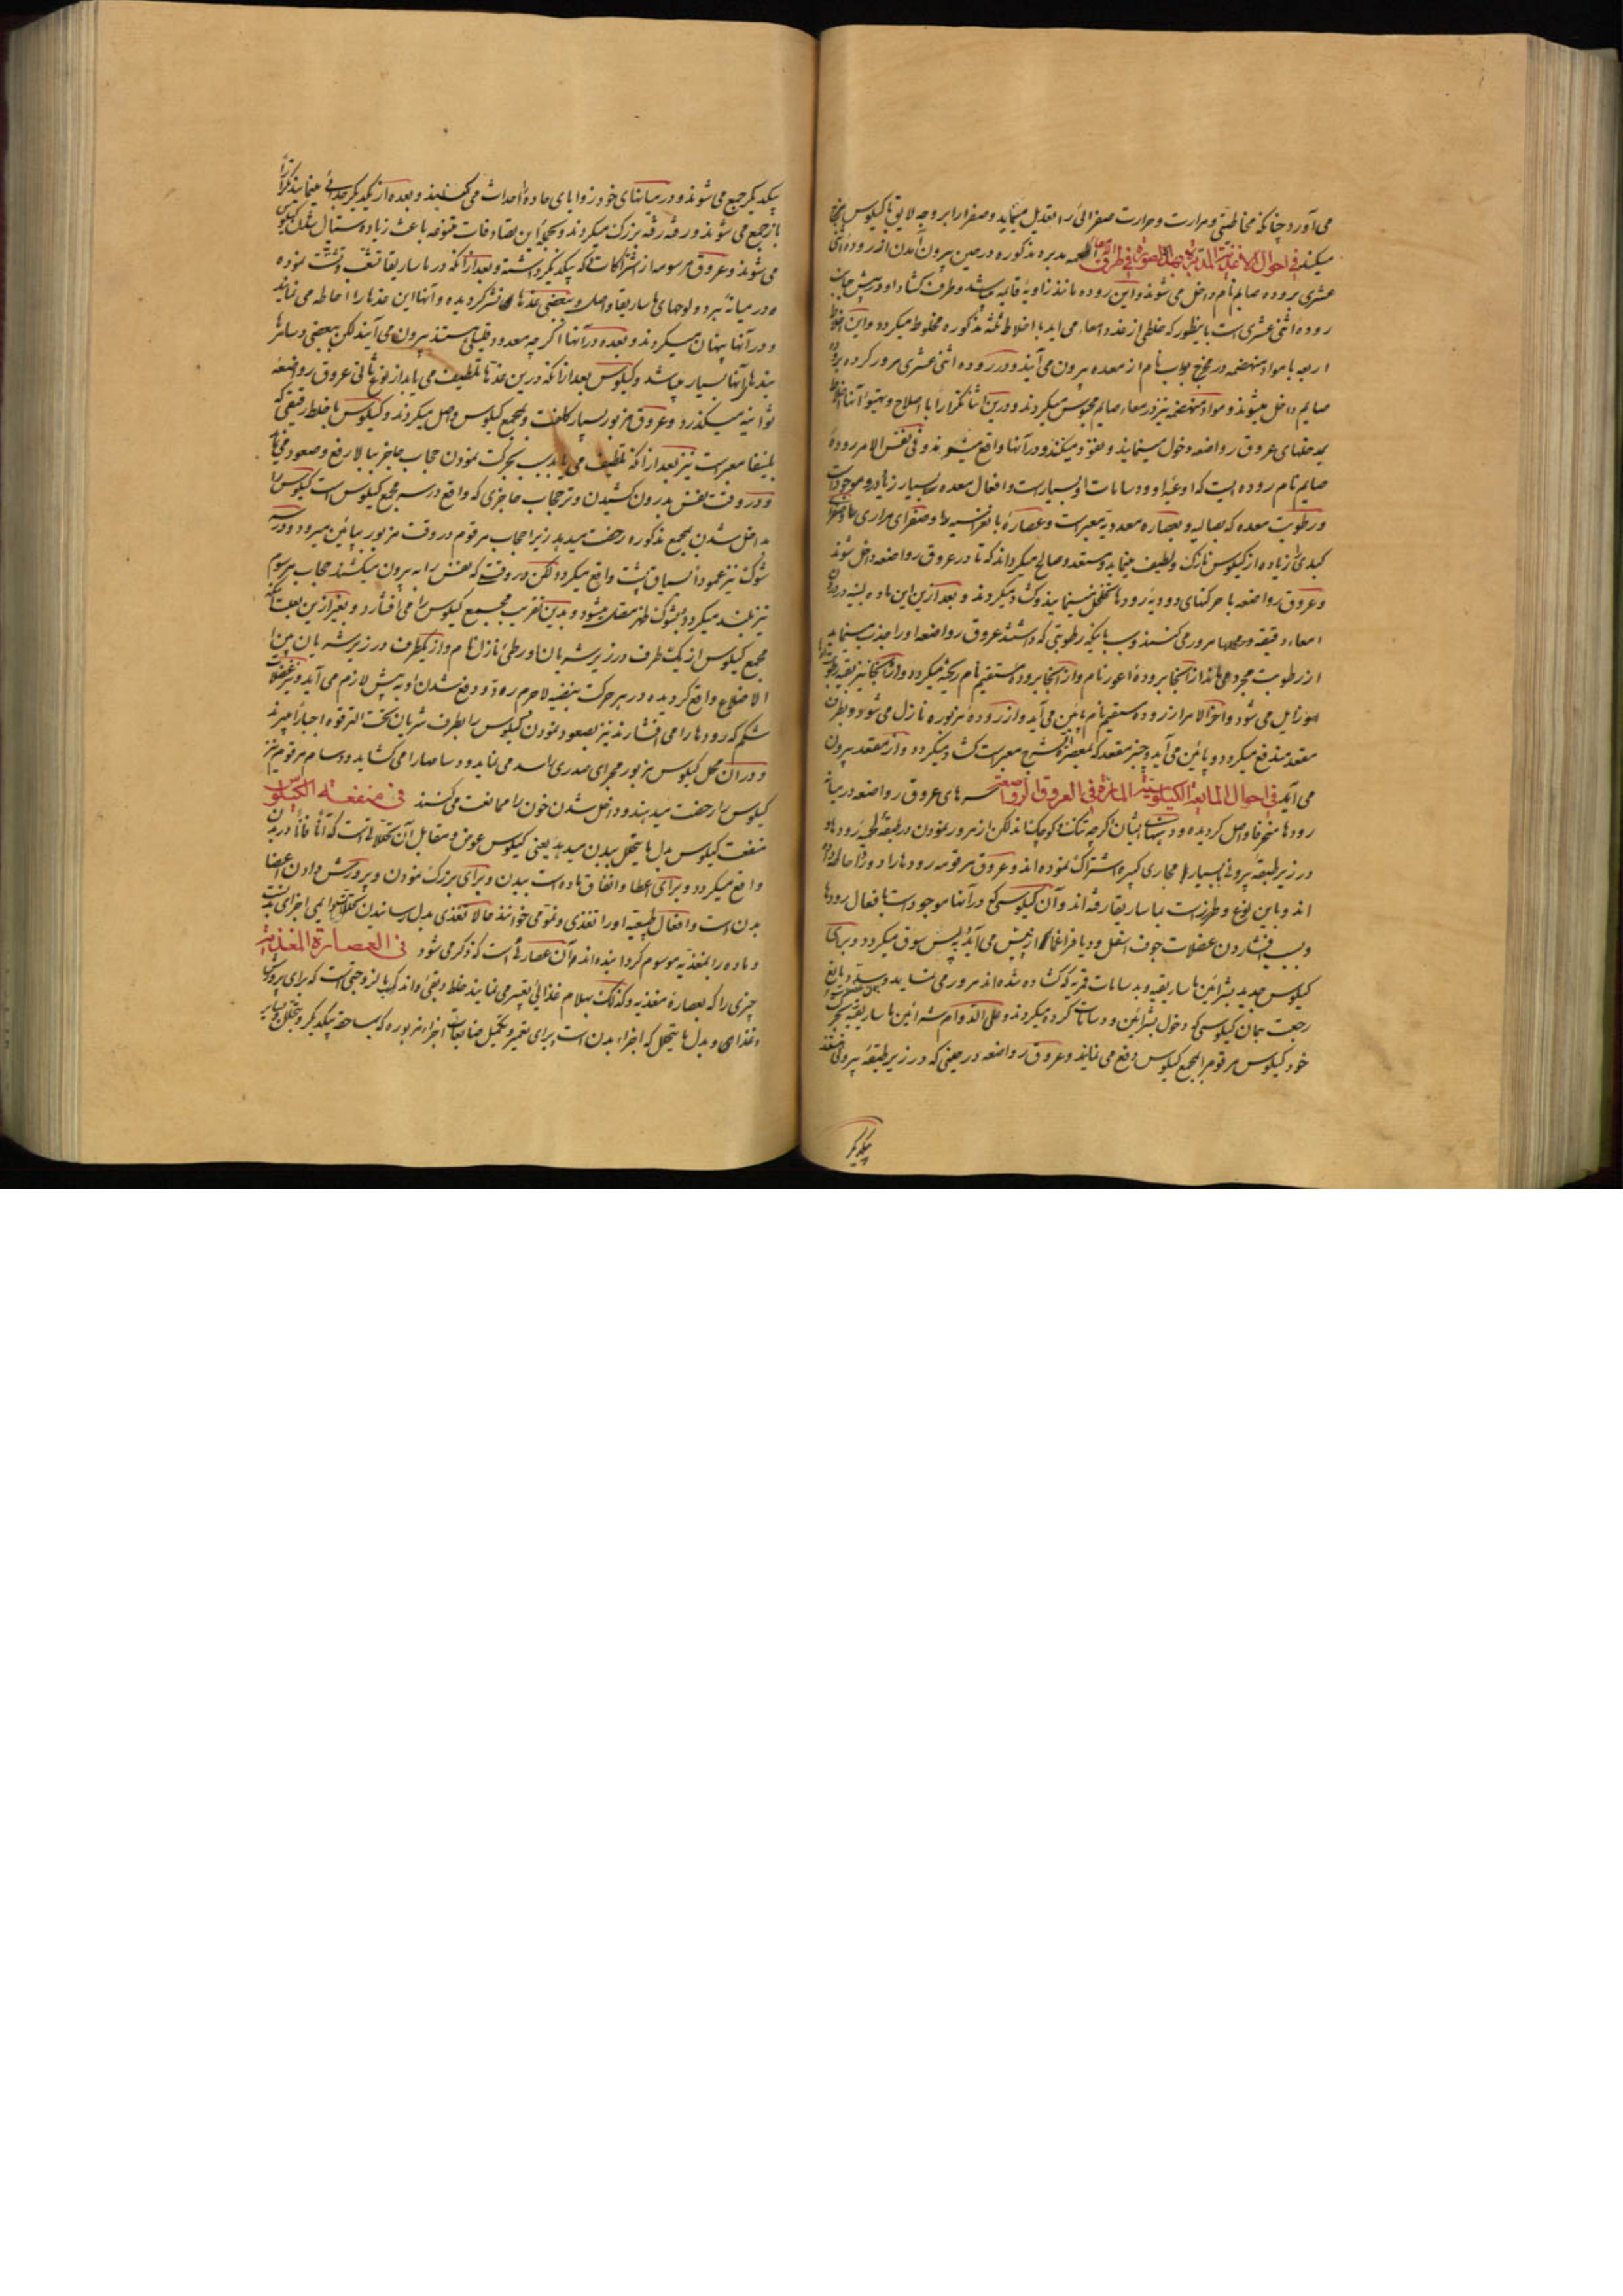 می آورد چنانکه مخاطتی و مرارت و حرارت صفرائی را تعدیل مینماید و صفرا را بر وجه لایق با کیلوس
میکند فی احوال الاغذیة المدبرة بهذه الصورة فی طرق
عشری بروده صایم نام داخل می شوند و این روده مانند زاویهٔ قایمه باشد و طرف کشاد او در پیش جانب
روده اثنی عشری است باینطور که خلطی از غدد امعاء می اید با اخلاط ثلثه مذکوره مخلوط میکردد و این اخلاط
اربعه با مواد منهضمه در مخرج بواب نام از معده بیرون می آیند و در روده اثنی عشری مرور کرده بروده
صایم داخل میشوند و مواد منهضمه نیز در معاء صایم محبوس میکردند و درین اثنا مکررا با اصلاح و تهیؤ آنها
عروق رواضعه دخول مینمایند و نفوذ میکنند و در آنها واقع میشوند و فی نفس الامر روده
صایم نام روده ایست که اوعیهٔ او و مسامات او بسیار است و افعال معده بسیار زیاده موجود است
و رطوبت معده که بصالیه و بعصارهٔ معدویه معبر است و عصارهٔ بانقراسیه و صفرای مراری
کبدی زیاده از کیلوس نازک و لطیف مینماید و مستعد و صالح میکرداند که تا در عروق رواضعه داخل شوند
و عروق رواضعه با حرکتهای دودیهٔ رودها تخلخل مینمایند و کشاد میکردند و بعد ازین این ماده
امعاء دقیقه مرور می کنند و بسبب بانکه رطوبتی که داشتند عروق رواضعه او را جذب مینماید
از رطوبت مجرد می مانند از آنجا برودهٔ اعور نام و از آنجا برودهٔ مستقیم نام ریخته میکردد و از آنجا نیز بقیه
زایل می شود و آخر الامر از رودهٔ مستقیم نام پائین می آید و از رودهٔ مزبوره نازل می شود و بطرف
مقعد مندفع میکردد و پائین می آید و چنبر مقعد که بمعصرهٔ شرج معبر است کشاد میکردد و از مقعد بیرون
می آید فی احوال المایعة الکیلوسیة المارة فی العروق الرواضعة سرهای عروق رواضعه در میانهٔ
رودها منحرفا واصل کردیده و دهنهای ایشان اکرچه تنک و کوچک اند لکن از مرور نمودن در طبقهٔ لحمیهٔ رودها
در زیر طبقهٔ بیرونی بسیار با مجاری کبیره اشتراک نموده اند و عروق مرقومه رودها را
اند و باین نوع و طرز است بماساریقا رفته اند و آن کیلوسی که در آنها موجود است با افعال رودها
و بسبب فشاردن عضلات جوف اسفل و دیافراغما از پیش می آید به پس سوق میکردد و برای
کیلوس جدید بشرائین ماساریقیه و بمسامات قریبه که کشاده شده اند مرور می نماید و
رجعت بهمان کیلوسی که دخول بشرائین و مسامات کرده میکردند و علی الدوام شرائین ماساریقیه
خود کیلوس مرقوم را بمجمع کیلوس دفع می نمایند و عروق رواضعه در حینی که در زیر طبقهٔ بیرونی
یکدیکر
یکدیکر جمع می شوند و در میانهای خود زوایای حاده احداث می کنند و بعده از یکدیکر جدائی مینمایند
باز جمع می شوند و رفته رفته بزرک میکردند و بجهة این تصادفات متنوعه باعث زیاده ستال شدن کیلوس
می شوند و عروق مرسومه از اشتراکات که بیکدیکر داشته و بعد از آنکه در ماساریقا
و در میانهٔ بردو لوحهای ماساریقا واصل و ببعضی غدها منتشر کردیده و آنها این غدها را احاطه می نمایند
و در آنها پنهان میکردند و بعده در آنها اکرچه معدود قلیلی هستند بیرون می آیند لکن ببعضی و سائر
بندهای آنها بسیار میباشد و کیلوس بعد از آنکه درین غدها تلطیف می یابد از نوع ثانی عروق رواضعه
ثوانیه میکذرد و عروق مزبور بسیار کلفت و بمجمع کیلوس واصل میکردند و کیلوس با خلط رقیقی که
بلینفا معبر است نیز بعد از آنکه تلطیف می یابد بسبب حرکت نمودن حجاب حاجز ببالا رفع و صعود می
و در وقت نفس بدرون کشیدن وتر حجاب حاجزی که واقع در سر مجمع کیلوس است کیلوس را
بداخل شدن بمجمع مذکوره رخصت میدهد زیرا حجاب مرقوم در وقت مزبور بپائین میرود و در
شوک نیز عمودا بسیاق پشت واقع میکردد لکن در وقتی که نفس را به بیرون میکشند حجاب مرسوم
نیز بلند میکردد بشوک ظهر متصل میشود و بدین تقریب مجمع کیلوس را می افشارد و بغیر ازین
مجمع کیلوس از یکطرف در زیر شریان اورطیٔ نازل نام و از یکطرف در زیر شریان بین
الاضلاع واقع کردیده در هر حرکت نبضیه لاجرم رد و دفع شدن او به پیش لازم می آید و نیز عضلات
شکم که رودها را می افشارند نیز بصعود نمودن کیلوس را بطرف شریان تحت الترقوه اجبارا میبرند
و در آن محل کیلوس مزبور مجرای صدری را سد می نماید و دسامها را می کشاید و دسام مرقوم نیز
کیلوس را رخصت میدهند و داخل شدن خون را ممانعت می کنند فی منفعة الکیلوس
منفعت کیلوس بدل ما یتحلل ببدن میدهد یعنی کیلوس عوض و مقابل آن تحللاتی است که آنا فآنا در بدن
واقع میکردد و برای اعطا و انفاق ماده است ببدن و برای بزرک نمودن و پرورش دادن اعضا
بدن است و افعال طبیعیه او را تغذی و نمو می خوانند حالا تغذی بدل رسانیدن تحللات یومی اجزای بدن است
و ماده را بمغذیه موسوم کردانیده اند و آن عصارئی است که ذکر می شود فی العصارة المغذیة
چیزی را که بعصارهٔ مغذیه و کذلک بهلام غذائی تعبیر می نمایند خلط دبقی دانند که بالزوجتی است که برای پرورش
و غذای و بدل ما یتحلل که اجزاء بدن است برای تعمیر و تکمیل ضایعات اجزاء مزبوره که بمساحقهٔ یکدیکر و بتحلل